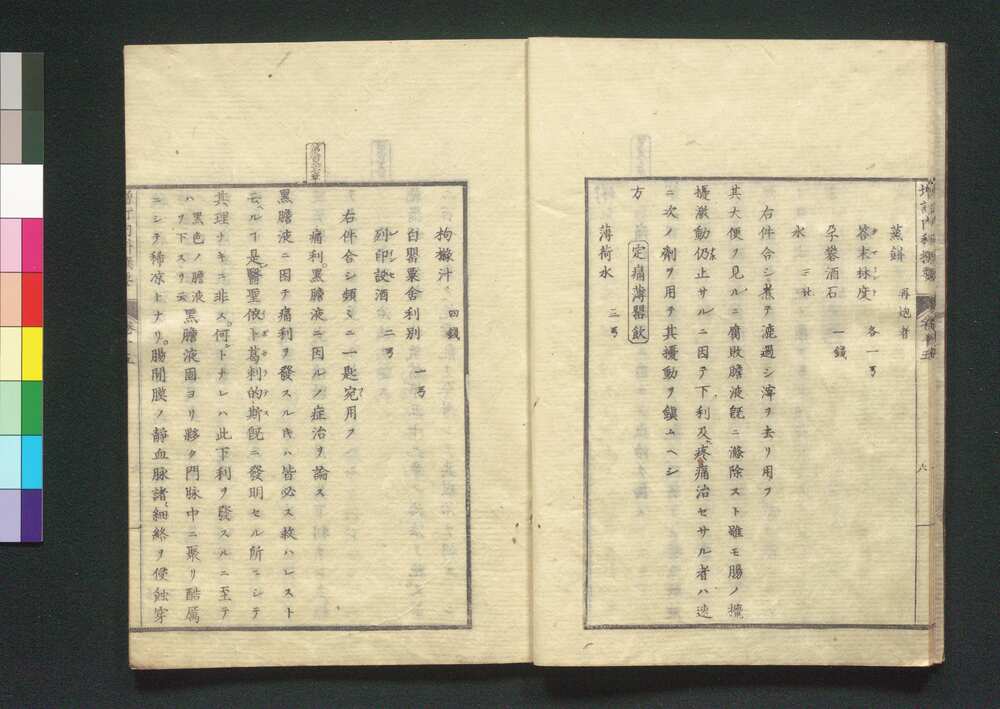 蒸餅 再炮者
答末林度 各一弓
孕礬酒石 一錢
水 三
右件合シ煮テ漉過シ滓ヲ去リ用フ
其大便ヲ見ルニ腐敗膽液既ニ滌除スト雖モ腸ノ擾
擾激動仍止サルニ因テ下利及疼痛治セサル者ハ速
ニ次ノ劑ヲ用テ其擾動ヲ鎮ムヘシ
方 定痛薄罌飲
薄荷水 三弓
枸櫞汁 四錢
白罌粟舍利別 一弓
列印設酒 二弓
右件合シ頻ニ一匙宛用フ
痛利黑膽液ニ因ルノ症治ヲ論ス
黑膽液ニ因テ痛利ヲ發スル片ハ皆必ス救ハレスト
云ルヿ是醫聖依卜葛刺的斯既ニ發明セル所ニシテ
其理ナキニ非ス何トナレハ此下利ヲ發スルニ至テ
ハ黑色ノ膽液ヲ下スヲ云黑膽液固ヨリ夥ク門脉中ニ聚リ酷厲
ニシテ稀凉トナリ腸間膜ノ靜血脉諸細絡ヲ侵蝕穿